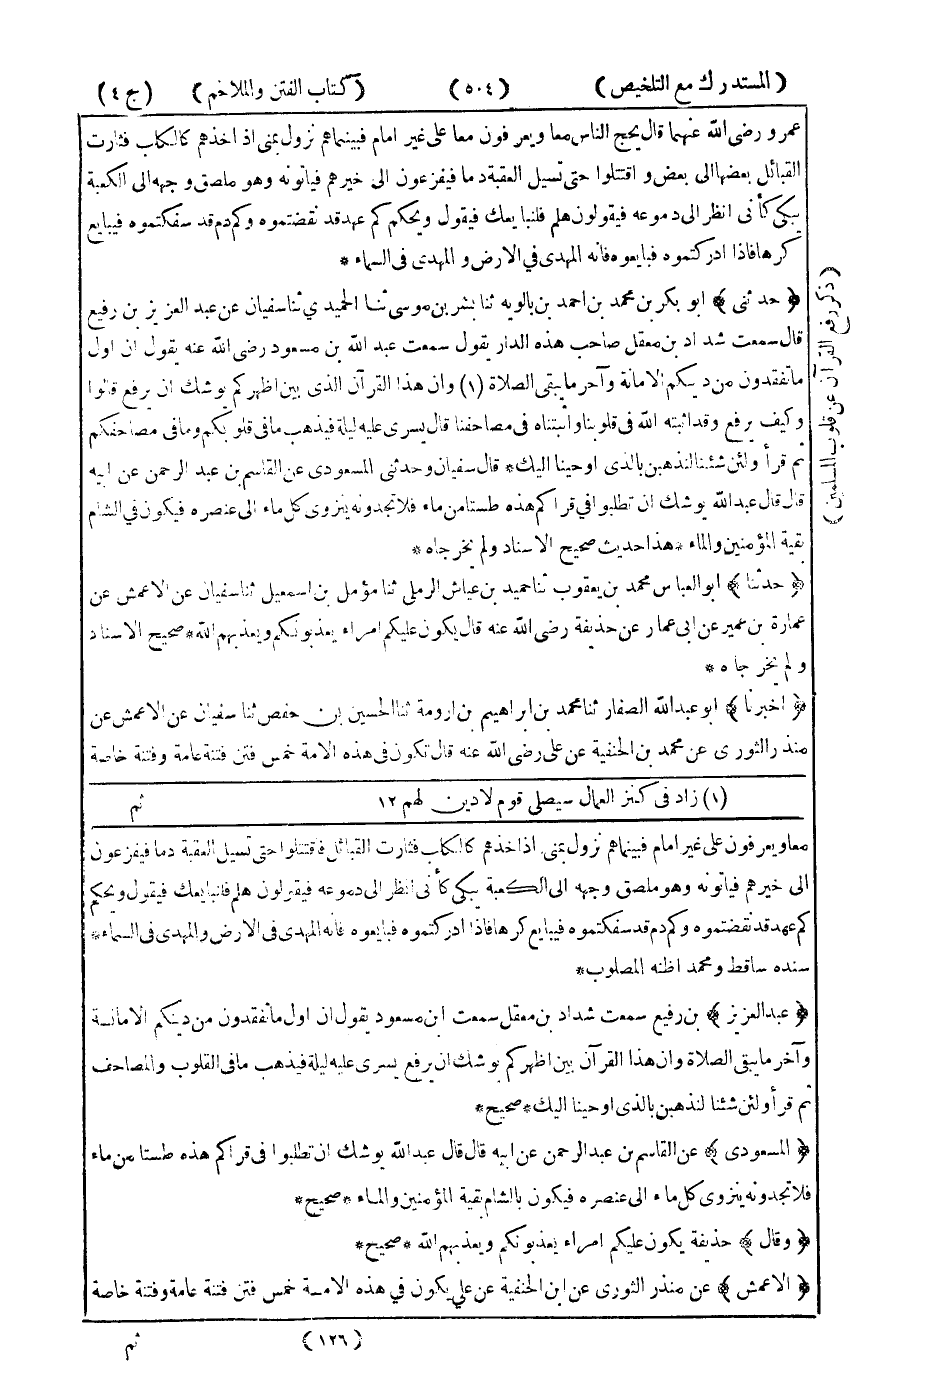 (المستدرك مع التلخيص) (٥٠٤) (كتاب الفتن والملاحم) (ج ٤)
عمرو رضى الله عنهما قال يحج الناس معا ويعرفون معا على غير امام فبينماهم نزول بمنى اذ اخذهم كالكلب فثارت
القبائل بعضها الى بعض و اقتتلوا حتى تسيل العقبة دما فيفزعون الى خيرهم فيأتونه وهو ملصق وجهه الى الكعبة
يبكى كأنى انظر الى دموعه فيقولون هلم فلنبايعك فيقول ويحكم كم عهد قد نقضتموه وكم دم قد سفكتموه فيبايع
كرها فاذا ادركتموه فبايعوه فانه المهدى فى الارض و المهدى فى السماء *
﴿ حدثنى ﴾ ابو بكر بن محمد بن احمد بن بالويه ثنا بشر بن موسى ثنا الحميدي ثنا سفيان عن عبد العزيز بن رفيع
قال سمعت شداد بن معقل صاحب هذه الدار يقول سمعت عبد الله بن مسعود رضى الله عنه يقول ان اول
ماتفقدون من دينكم الامانة وآخر ما يبقى الصلاة (١) وان هذا القرآن الذى بين اظهركم يوشك ان يرفع قالوا
وكيف يرفع وقد اثبته الله فى قلوبنا وأثبتناه فى مصاحفنا قال يسرى عليه ليلة فيذهب مافى قلوبكم ومافى مصاحفكم
ثم قرأ ولئن شئنا لنذهبن بالذى اوحينا اليك * قال سفيان وحدثنى المسعودى عن القاسم بن عبد الرحمن عن ابيه
قال قال عبدالله يوشك ان تطلبوا فى قراكم هذه طستا من ماء فلا تجدونه ينزوى كل ماء الى عنصره فيكون فى الشام
بقية المؤمنين والماء * هذا حديث صحيح الاسناد ولم يخرجاه *
﴿ حدثنا ﴾ ابو العباس محمد بن يعقوب ثنا حميد بن عياش الرملى ثنا مؤمل بن اسمعيل ثنا سفيان عن الاعمش عن
عمارة بن عمير عن ابى عمار عن حذيفة رضى الله عنه قال يكون عليكم امراء يعذبونكم ويعذبهم الله * صحيح الاسناد
ولم يخرجاه *
﴿ اخبرنا ﴾ ابو عبدالله الصفار ثنا محمد بن ابراهيم بن ارومة ثنا الحسين بن حفص ثنا سفيان عن الاعمش عن
منذر الثورى عن محمد بن الحنفية عن على رضى الله عنه قال تكون فى هذه الامة خمس فتن فتنة عامة وفتنة خاصة
(١) زاد فى كنز العمال سيصلى قوم لا دين لهم ١٢
ثم
معا ويعرفون على غير امام فبينماهم نزول بمنى اذ اخذهم كالكلب فثارت القبائل فاقتتلوا حتى تسيل العقبة دما فيفزعون
الى خيرهم فيأتونه وهو ملصق وجهه الى الكعبة يبكى كأنى انظر الى دموعه فيقولون هلم فلنبايعك فيقول ويحكم
كم عهد قد نقضتموه وكم دم قد سفكتموه فيبايع كرها فاذا ادركتموه فبايعوه فانه المهدى فى الارض والمهدى فى السماء *
سنده ساقط و محمد اظنه المصلوب *
﴿ عبد العزيز ﴾ بن رفيع سمعت شداد بن معقل سمعت ابن مسعود يقول ان اول ماتفقدون من دينكم الامانة
وآخر ما يبقى الصلاة وان هذا القرآن بين اظهركم يوشك ان يرفع يسرى عليه ليلة فيذهب مافى القلوب والمصاحف
ثم قرأ ولئن شئنا لنذهبن بالذى اوحينا اليك * صحيح *
﴿ المسعودى ﴾ عن القاسم بن عبد الرحمن عن ابيه قال قال عبدالله يوشك ان تطلبوا فى قراكم هذه طستا من ماء
فلا تجدونه ينزوى كل ماء الى عنصره فيكون بالشام بقية المؤمنين والماء * صحيح *
﴿ وقال ﴾ حذيفة يكون عليكم امراء يعذبونكم ويعذبهم الله * صحيح *
﴿ الاعمش ﴾ عن منذر الثورى عن ابن الحنفية عن علي يكون في هذه الامة خمس فتن فتنة عامة وفتنة خاصة
(١٢٦) ثم
(ذكر رفع القرآن عن قلوب المسلمين)